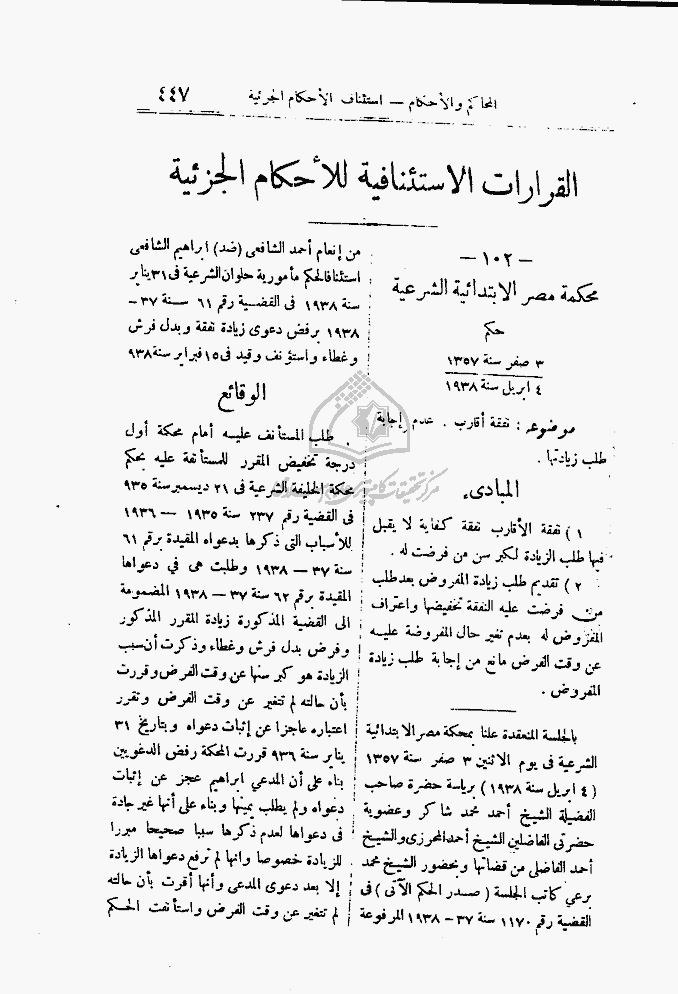 المحاكم والأحكام — استئناف الأحكام الجزئية ٤٤٧
القرارات الاستئنافية للأحكام الجزئية
— ١٠٢ —
محكمة مصر الابتدائية الشرعية
حكم
٣ صفر سنة ١٣٥٧
٤ ابريل سنة ١٩٣٨
موضوعه : نفقة أقارب . عدم إجابة
طلب زيادتها .
المبادىء
١ ) نفقة الأقارب نفقة كفاية لا يقبل
فيها طلب الزيادة لكبر سن من فرضت له .
٢ ) تقديم طلب زيادة المفروض بعد طلب
من فرضت عليه النفقة تخفيضها واعتراف
المفروض له بعدم تغير حال المفروضة عليه
عن وقت الفرض مانع من إجابة طلب زيادة
المفروض .
بالجلسة المنعقدة علنا بمحكمة مصر الابتدائية
الشرعية فى يوم الاثنين ٣ صفر سنة ١٣٥٧
( ٤ ابريل سنة ١٩٣٨ ) برياسة حضرة صاحب
الفضيلة الشيخ أحمد محمد شاكر وعضوية
حضرتى الفاضلين الشيخ أحمد المحرزى والشيخ
أحمد الفاضلى من قضاتها وبحضور الشيخ محمد
برعي كاتب الجلسة ( صدر الحكم الآتى ) فى
القضية رقم ١١٧٠ سنة ٣٧ – ١٩٣٨ المرفوعة
من إنعام أحمد الشافعى (ضد) ابراهيم الشافعى
استئنافا لحكم مأمورية حلوان الشرعية فى ٣١ يناير
سنة ١٩٣٨ فى القضية رقم ٦١ سنة ٣٧ –
١٩٣٨ برفض دعوى زيادة نفقة وبدل فرش
وغطاء واستؤنف وقيد فى ١٥ فبراير سنة ٩٣٨
الوقائع
طلب المستأنف عليه أمام محكمة أول
درجة تخفيض المقرر للمستأنفة عليه بحكم
محكمة الخليفة الشرعية فى ٢١ ديسمبر سنة ٩٣٥
فى القضية رقم ٢٣٧ سنة ١٩٣٥ — ١٩٣٦
للأسباب التى ذكرها بدعواه المقيدة برقم ٦١
سنة ٣٧ — ١٩٣٨ وطلبت هى فى دعواها
المقيدة برقم ٦٢ سنة ٣٧ – ١٩٣٨ المضمومة
الى القضية المذكورة زيادة المقرر المذكور
وفرض بدل فرش وغطاء وذكرت أن سبب
الزيادة هو كبر سنها عن وقت الفرض وقررت
بأن حالته لم تتغير عن وقت الفرض وتقرر
اعتباره عاجزا عن إثبات دعواه وبتاريخ ٣١
يناير سنة ٩٣٦ قررت المحكمة رفض الدعويين
بناء على أن المدعي ابراهيم عجز عن إثبات
دعواه ولم يطلب يمينها وبناء على أنها غير جادة
فى دعواها لعدم ذكرها سببا صحيحا مبررا
للزيادة خصوصا وانها لم ترفع دعواها الزيادة
إلا بعد دعوى المدعى وأنها أقرت بأن حالته
لم تتغير عن وقت الفرض واستأنفت الحكم